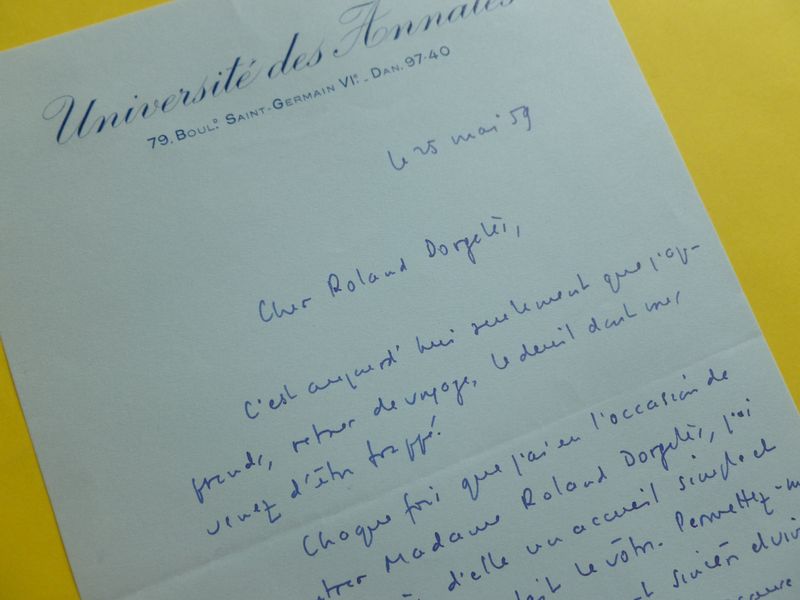 Université des Annales
79. BOULD SAINT-GERMAIN VIE - DAN. 97-40
le 25 mai 59
Cher Roland Dorgelès,
C'est aujourd'hui seulement que j'ap-
prends, retour de voyage, le deuil dont vous
venez d'être frappé.
Chaque fois que j'ai eu l'occasion de
Madame Roland Dorgelès, j'ai
d'elle un accueil simple et
le vôtre. Permettez-m